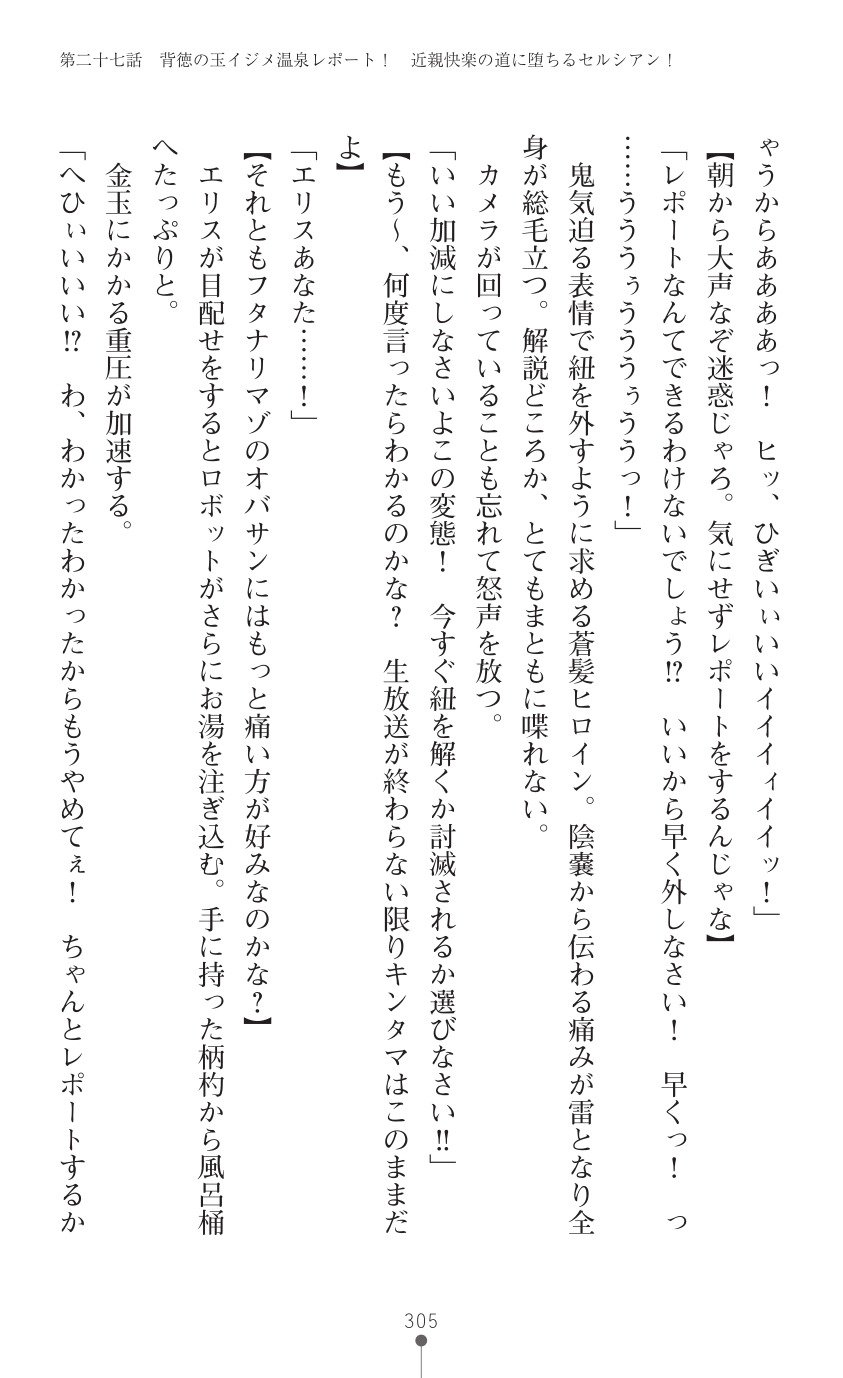 第二十七話　背徳の玉イジメ温泉レポート！　近親快楽の道に堕ちるセルシアン！
ゃうからああああっ！　ヒッ、ひぎいぃいいイイイィイイッ！」
【朝から大声なぞ迷惑じゃろ。気にせずレポートをするんじゃな】
「レポートなんてできるわけないでしょう⁉　いいから早く外しなさい！　早くっ！　っ
……うううぅうううぅううっ！」
　鬼気迫る表情で紐を外すように求める蒼髪ヒロイン。陰嚢から伝わる痛みが雷となり全
身が総毛立つ。解説どころか、とてもまともに喋れない。
　カメラが回っていることも忘れて怒声を放つ。
「いい加減にしなさいよこの変態！　今すぐ紐を解くか討滅されるか選びなさい‼」
【もう～、何度言ったらわかるのかな？　生放送が終わらない限りキンタマはこのままだ
よ】
「エリスあなた……！」
【それともフタナリマゾのオバサンにはもっと痛い方が好みなのかな？】
　エリスが目配せをするとロボットがさらにお湯を注ぎ込む。手に持った柄杓から風呂桶
へたっぷりと。
　金玉にかかる重圧が加速する。
「へひぃいいい⁉　わ、わかったわかったからもうやめてぇ！　ちゃんとレポートするか
305